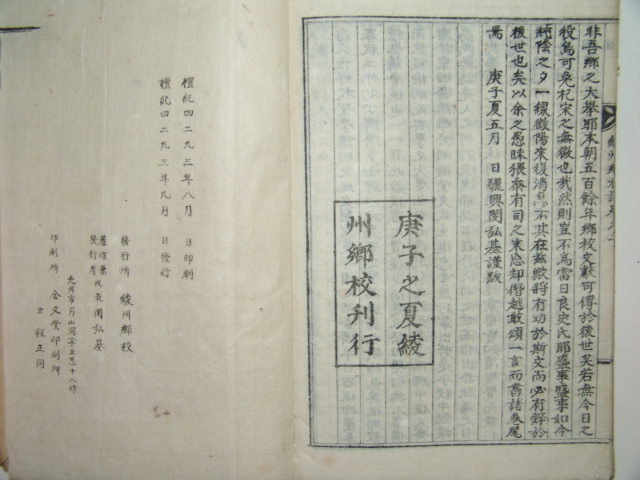 非吾鄉之大擧耶本朝五百餘年鄉校文獻可傳於後世矣若無今日之
役烏可免杞宋之無徵也哉然則豈不爲當日良史氏耶盛事盛事如今
純陰之夕一線微陽來復消息不其在茲歟將有功於斯文而必有辭於
後世也矣以余之愚昧猥忝有司之末忘却僭越敢頌一言而書諸卷尾
焉 庚子夏五月 日驪興閔弘基謹跋
庚子之夏綾
州鄉校刊行
檀紀四二九三年八月 日印刷
檀紀四二九三年九月 日發行
發行所 綾州鄉校
著作兼
發行者 代表閔弘基
光州市月山洞
印刷所 全文堂印刷所